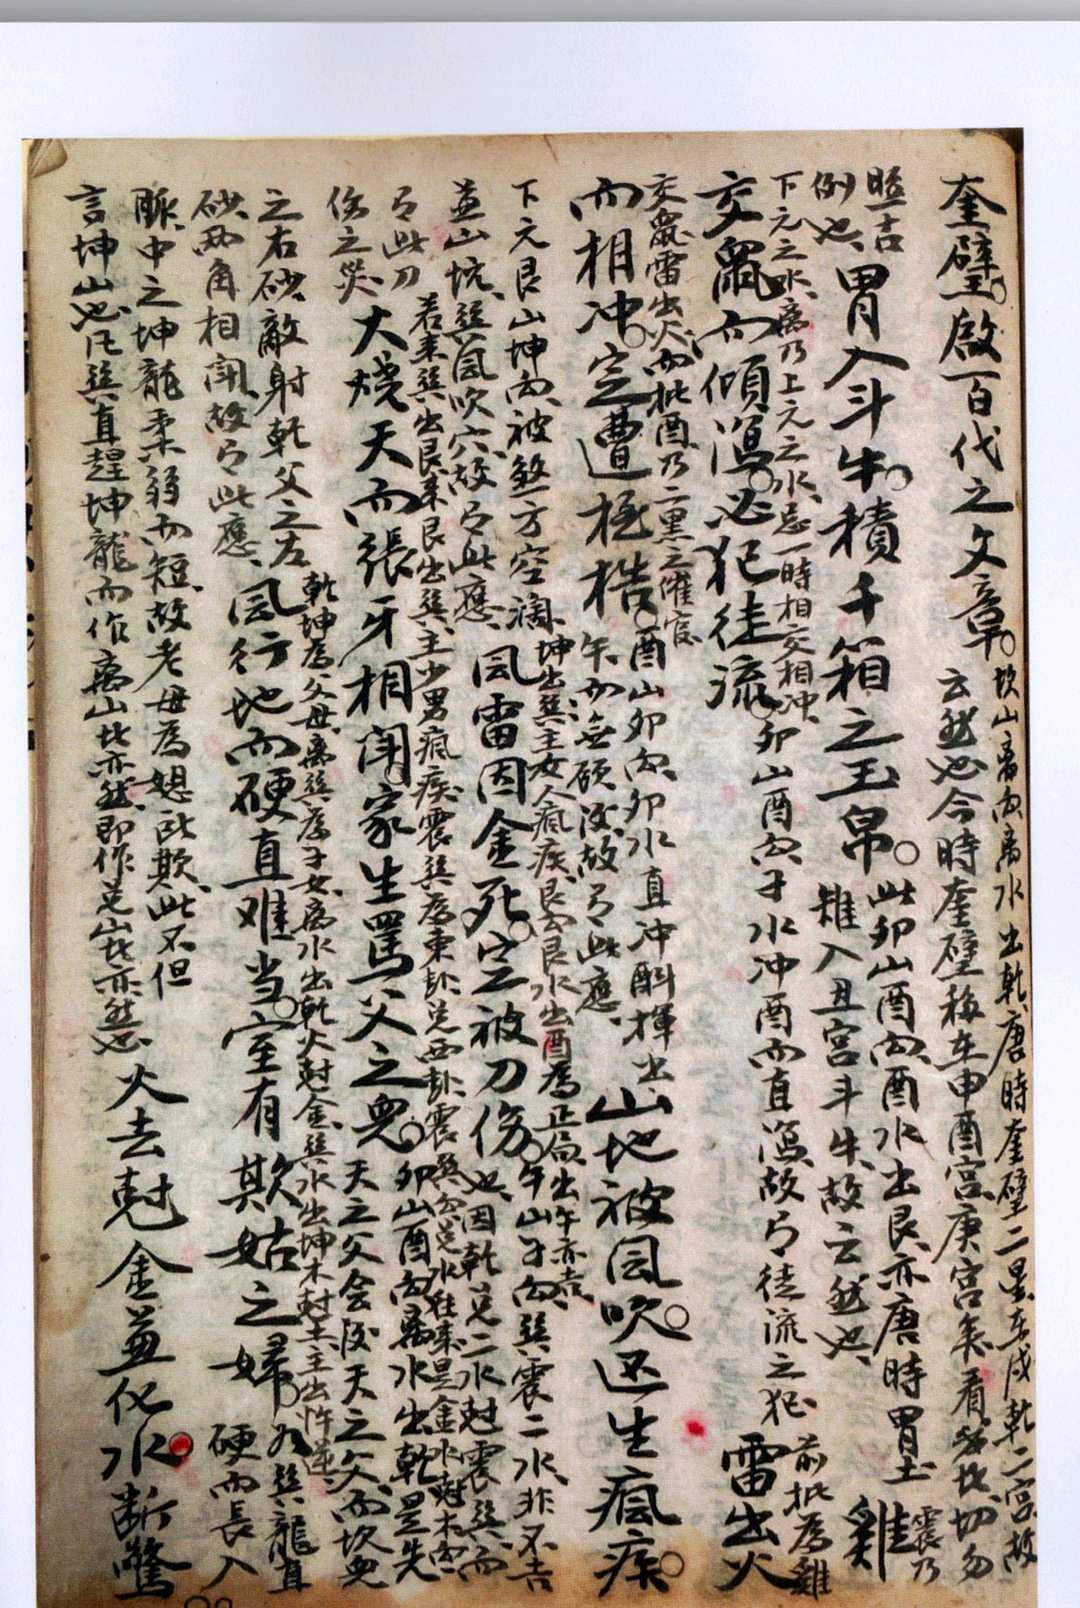 奎璧啟百代之文章 坎山离向离水出乾唐時奎璧二星在戌乾二宮故
云然也今時奎璧移在申酉宮庚宮矣看者切勿
照古 此卯山酉向酉水出艮亦唐時胃土
例也 胃入斗牛積千箱之玉帛 雉入丑宮斗牛故云然也 雞 震乃
下元之水离乃上元之水忌一時相交相冲 卯山酉向子水冲酉而直瀉故有徒流之犯 前批為雞
交鼠而傾瀉必犯徒流 雷出火
交鼠雷出火而批酉乃二黑之催官 酉山卯向卯水直冲斟揮出
而相冲定遭桎梏 午而無顧没故有此應 山地被風吹还生瘋疾
下元艮山坤向被煞方空濶 坤出巽主女人瘋疾艮水出酉為正局出午亦吉
並山坑巽風吹穴故有此應 風雷因金死定被刀伤 午山子向巽震二水非不吉
也因乾兑二水尅震巽而
有此刀 若来巽出艮来艮出巽主少男瘋疾震巽為東卦兑西卦
伤之災 火燒天而張牙相闘家生罵父之兒 卯山酉向离水出乾是先
天之父会後天之父而坎兒
之右砂敵射乾父之左 乾坤為父母离巽為子女离水出乾火尅金巽水出坤木尅土主出忤逆
砂两角相闘故有此應 風行地而硬直难当室有欺姑之婦 巽龍直
硬而長入
脈中之坤龍柔弱而短故老母為媳所欺此不但
言坤山也凡巽直趕坤龍而作离山者亦然即作兑山者亦然也 火去尅金並化水断驚